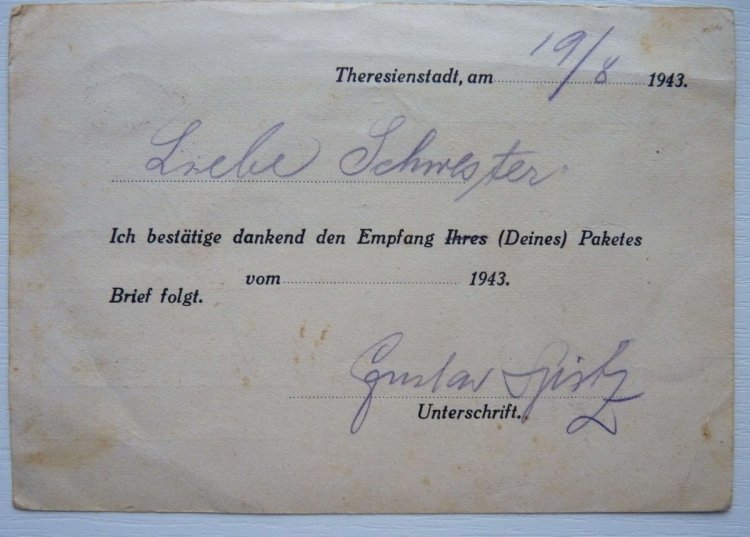 Theresienstadt, am 19/8 1943.
Liebe Schwester
Ich bestätige dankend den Empfang Ihres (Deines) Paketes
vom 1943.
Brief folgt.
Gustav Spitz
Unterschrift.